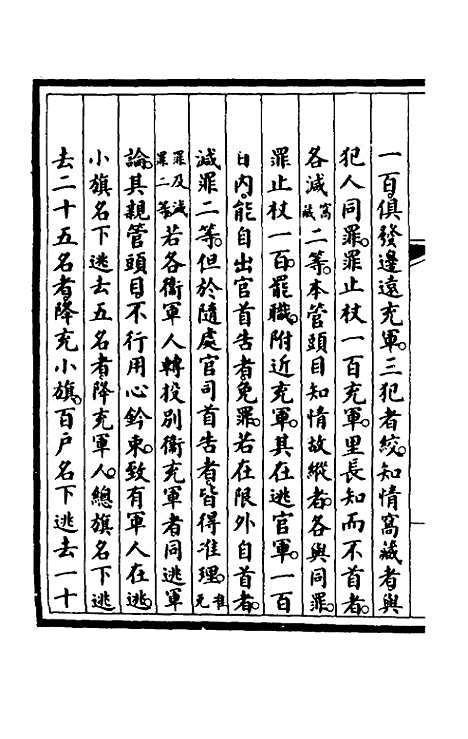 一百俱發邊遠充軍三犯者絞知情窩藏者與
犯人同罪罪止杖一百充軍里長知而不首者
各減窩藏二等本管頭目知情故縱者各與同罪
罪止杖一百罷職附近充軍其在逃官軍一百
日內能自出官首告者免罪若在限外自首者
減罪二等但於隨處官司首告者皆得准理准免
罪及減罪二等若各衛軍人轉投別衛充軍者同逃軍
論其親管頭目不行用心鈐束致有軍人在逃
小旗名下逃去五名者降充軍人總旗名下逃
去二十五名者降充小旗百戶名下逃去一十